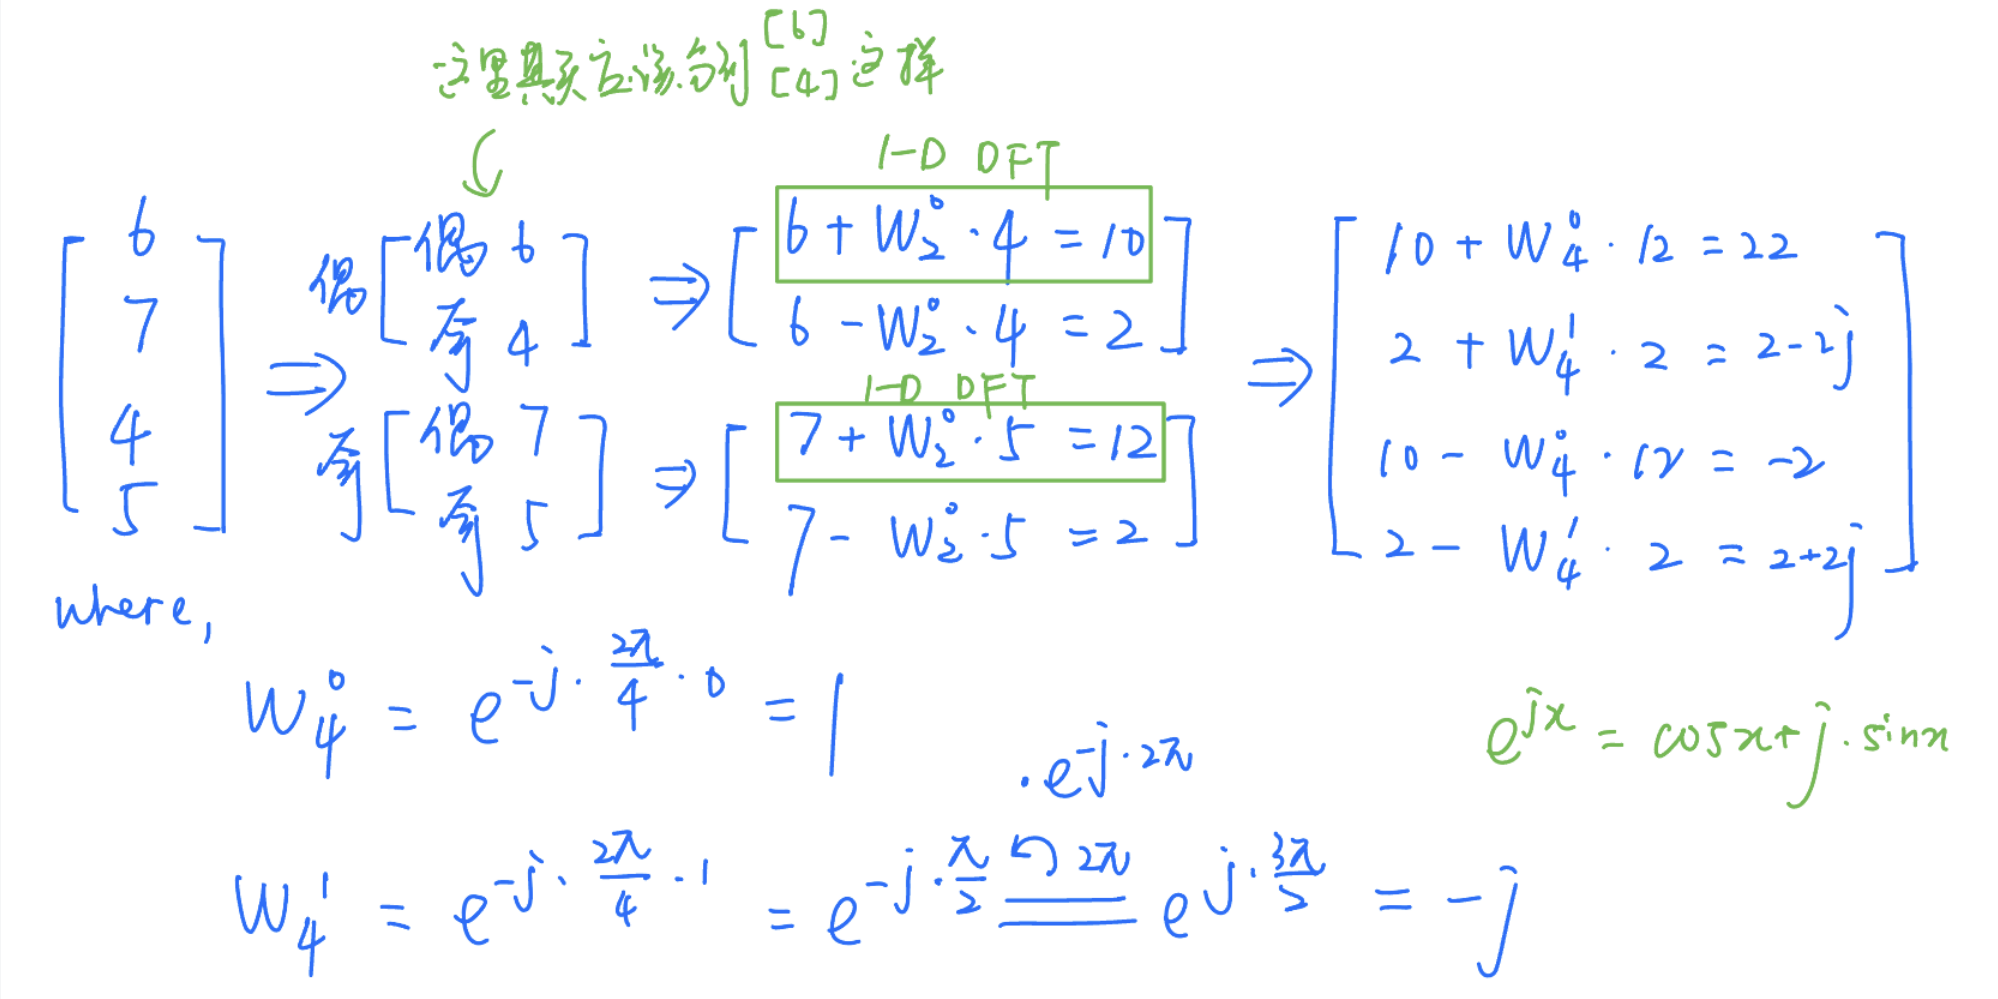 这里其实应该分到 [6] 这样
[4]
1-D DFT
6
7
4
5
⇒
偶 [偶 6
奇 4]
奇 [偶 7
奇 5]
⇒
6 + W₂⁰ · 4 = 10
6 - W₂⁰ · 4 = 2
1-D DFT
⇒
7 + W₂⁰ · 5 = 12
7 - W₂⁰ · 5 = 2
⇒
10 + W₄⁰ · 12 = 22
2 + W₄¹ · 2 = 2-2j
10 - W₄⁰ · 12 = -2
2 - W₄¹ · 2 = 2+2j
where,
W₄⁰ = e^(-j · 2π/4 · 0) = 1
e^(jx) = cosx + j · sinx
· e^(-j · 2π)
W₄¹ = e^(-j · 2π/4 · 1) = e^(-j · π/2) ↶ 2π = e^(j · 3π/2) = -j